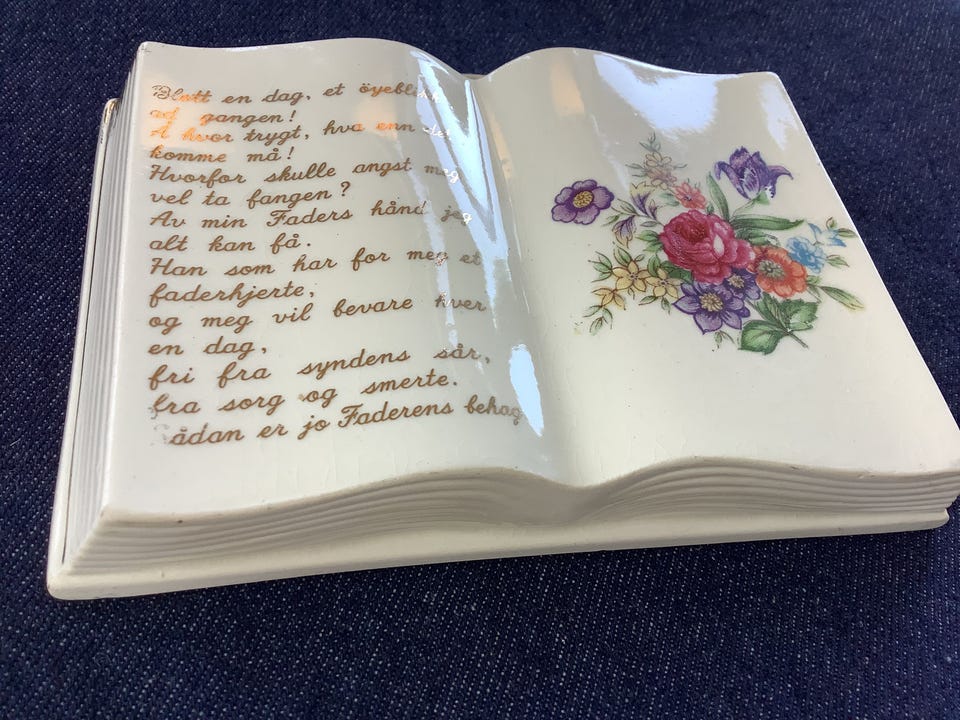 Blott en dag, et öyeblikk
ad gangen!
Å hvor trygt, hva enn det
komme må!
Hvorfor skulle angst meg
vel ta fangen?
Av min Faders hånd jeg
alt kan få.
Han som har for meg et
faderhjerte,
og meg vil bevare hver
en dag,
fri fra syndens sår,
fra sorg og smerte.
Sådan er jo Faderens behag